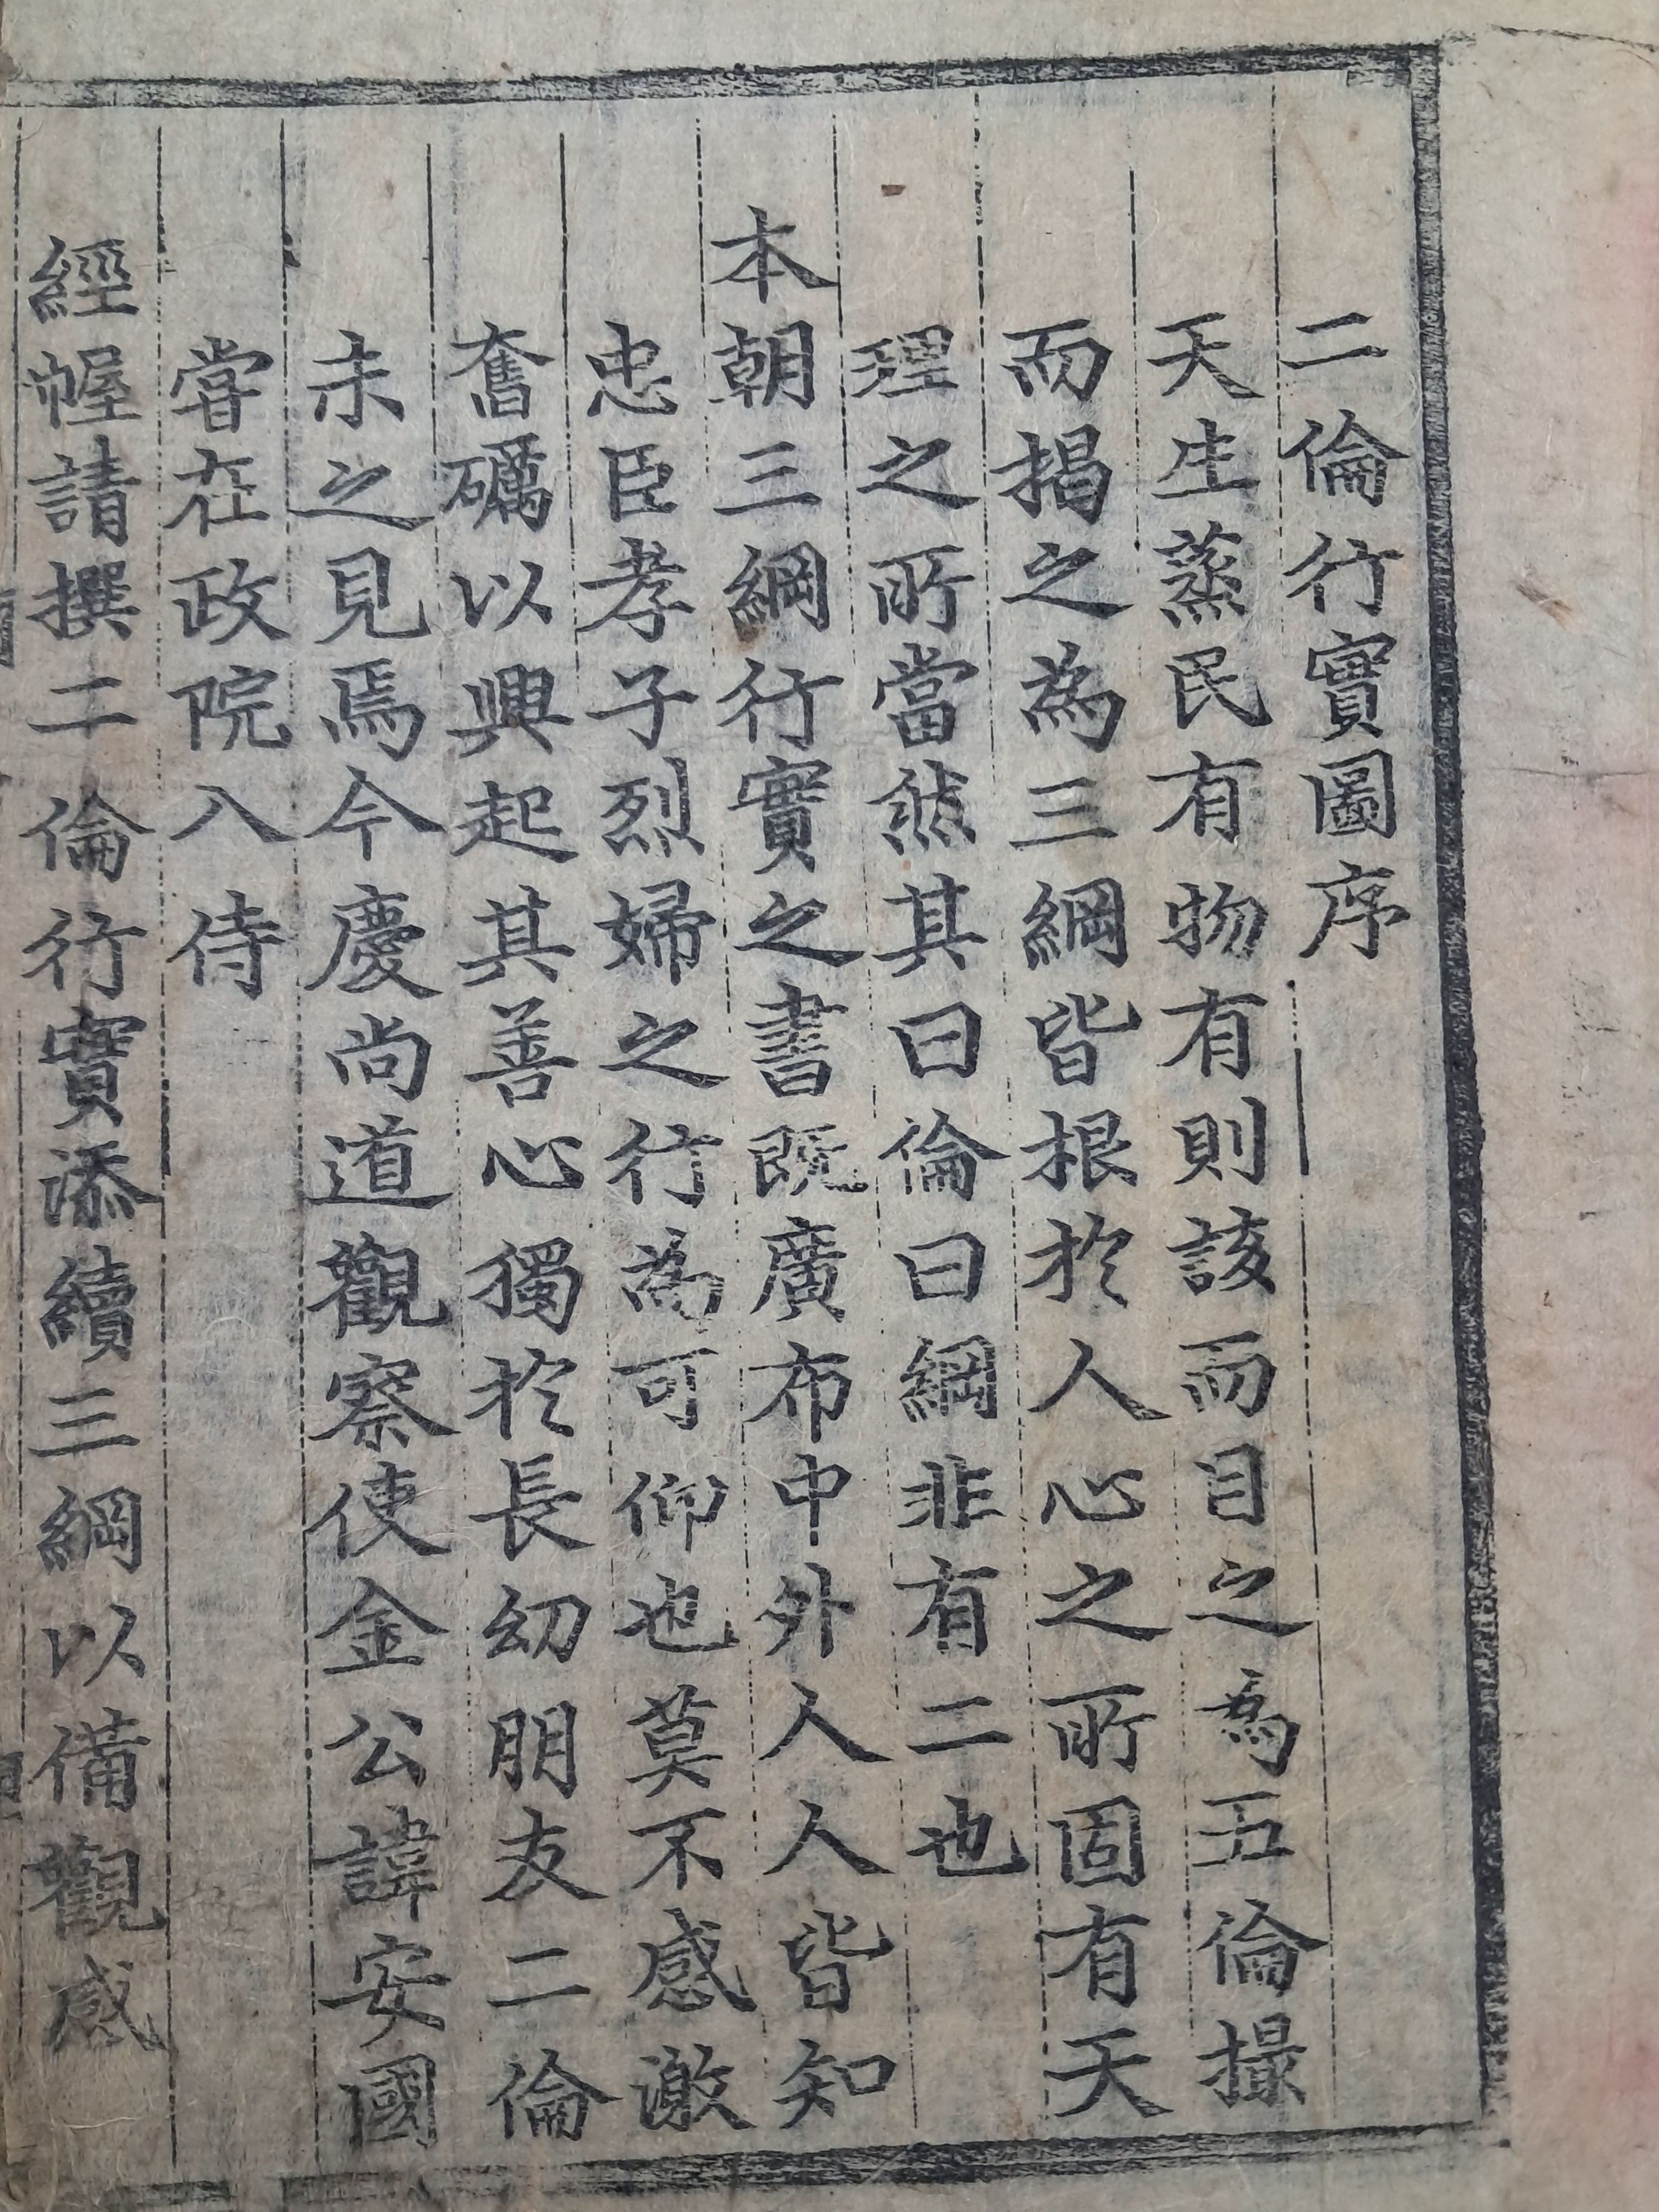 二倫行實圖序
天生蒸民有物有則該而目之為五倫撮
而揭之為三綱皆根於人心之所固有天
理之所當然其曰倫曰綱非有二也
本朝三綱行實之書既廣布中外人人皆知
忠臣孝子烈婦之行為可仰也莫不感激
奮礪以興起其善心獨於長幼朋友二倫
未之見焉今慶尚道觀察使金公諱安國
嘗在政院入侍
經幄請撰二倫行實添續三綱以備觀感